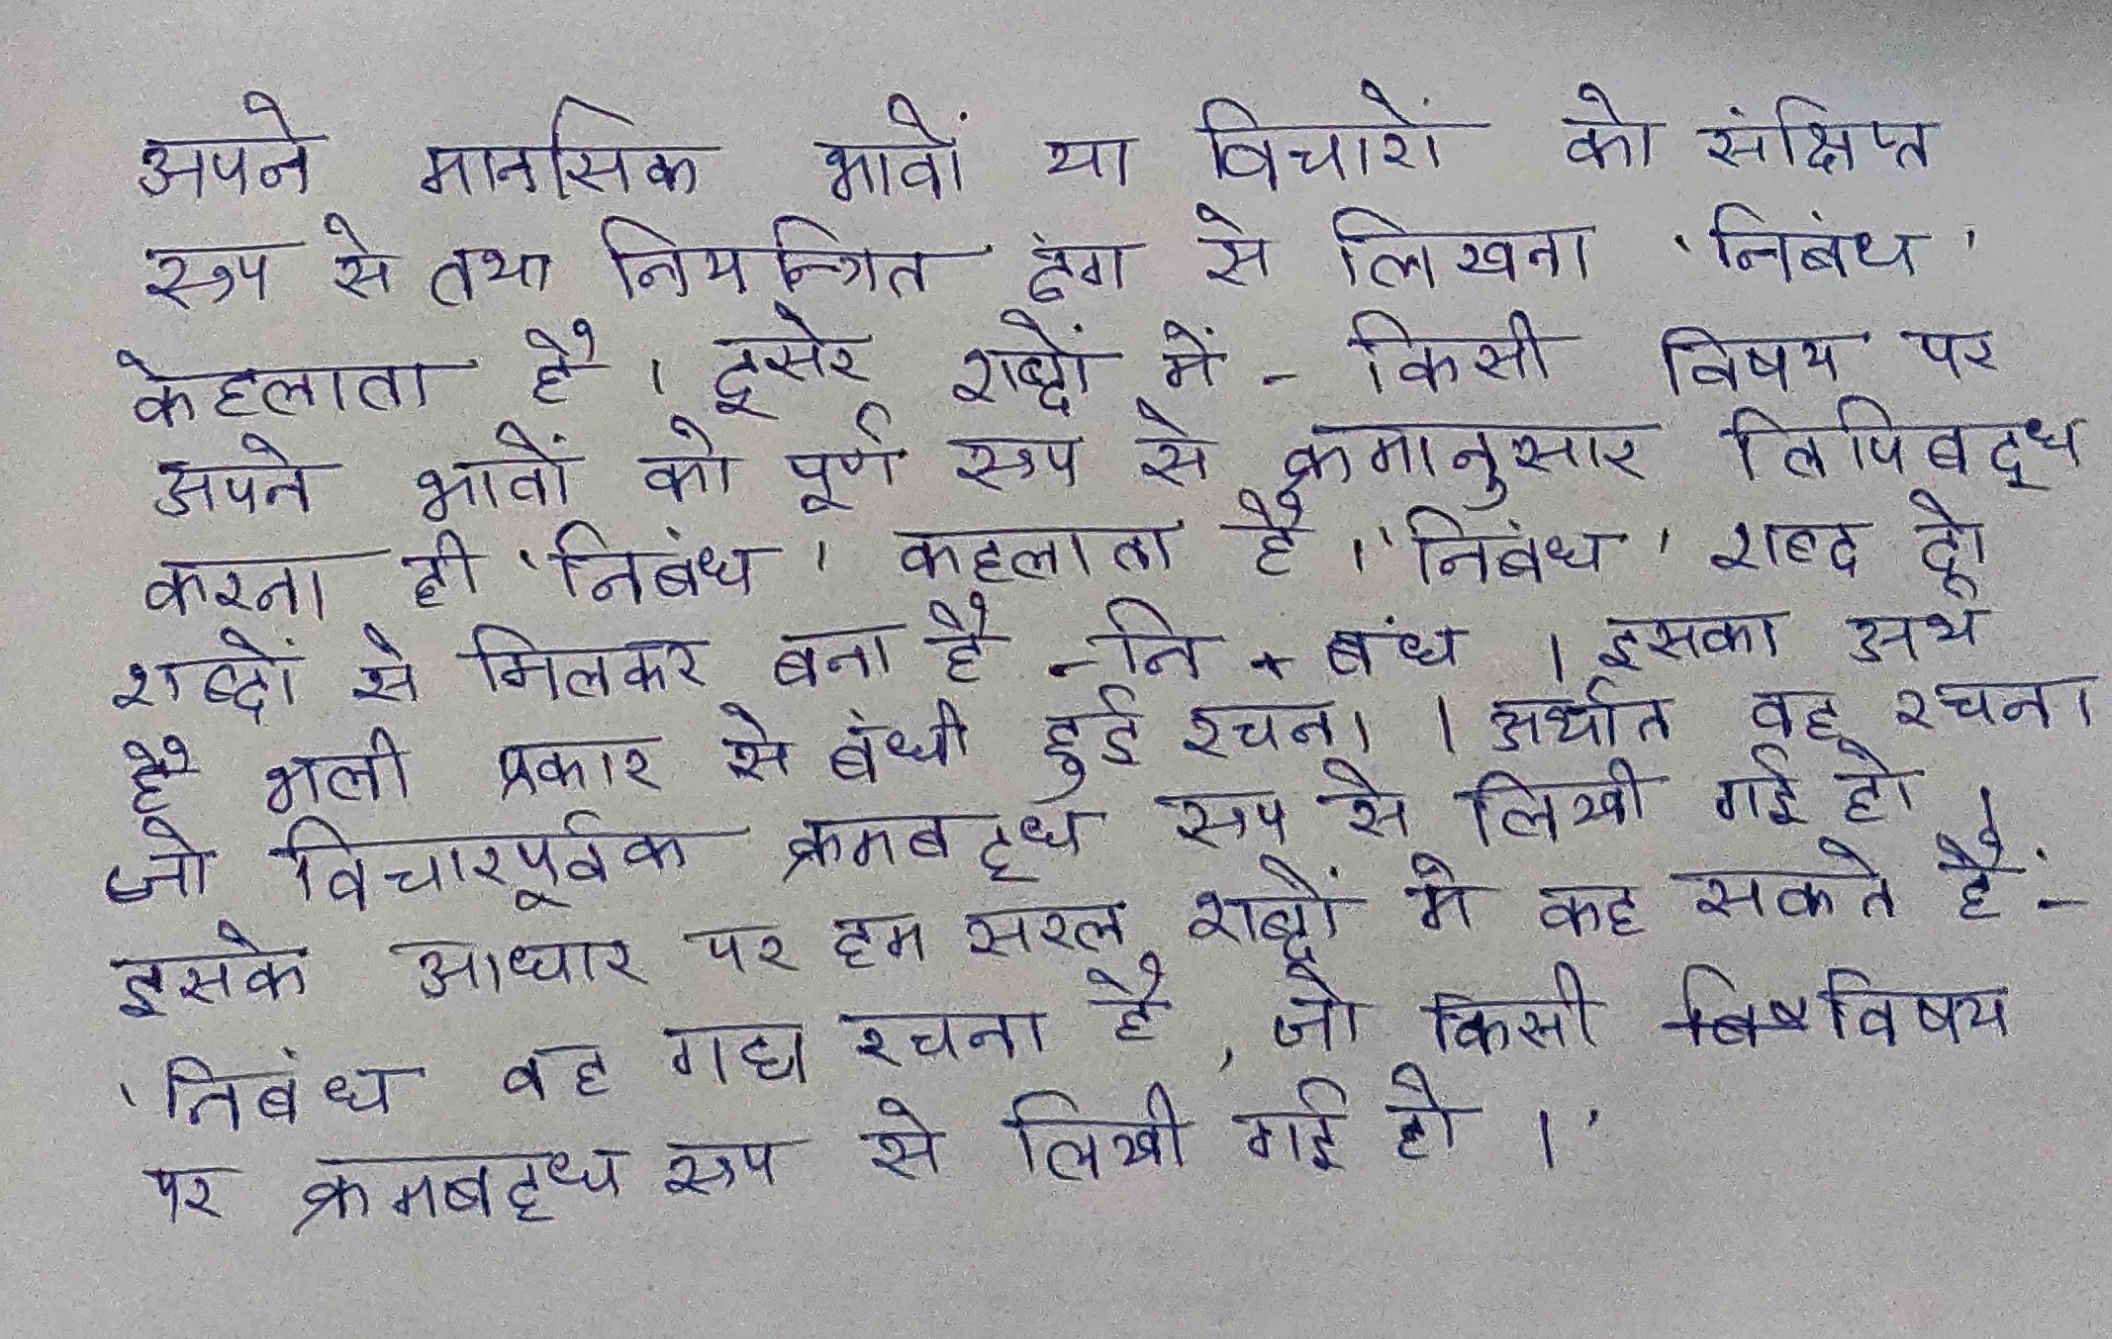 अपने मानसिक भावों या विचारों को संक्षिप्त
रूप से तथा नियन्त्रित ढंग से लिखना 'निबंध'
केहलाता है । दूसेर शब्दों में - किसी विषय पर
अपने भावों को पूर्ण रूप से क्रमानुसार लिपिबद्ध
करना ही 'निबंध' कहलाता है । 'निबंध' शब्द दो
शब्दों से मिलकर बना है - नि + बंध । इसका अर्थ
है भली प्रकार से बंधी हुई रचना । अर्थात वह रचना
जो विचारपूर्वक क्रमबद्ध रूप से लिखी गई हो ।
इसके आधार पर हम सरल शब्दों मे कह सकते हैं -
'निबंध वह गद्य रचना है , जो किसी विषय
पर क्रमबद्ध रूप से लिखी गई हो ।'